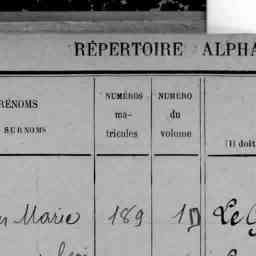 RÉPERTOIRE ALPHA
RÉNOMS
SURNOMS
NUMÉROS
ma-
tricules
NUMÉRO
du
volume
(Il doit
Marie 189 1 Le